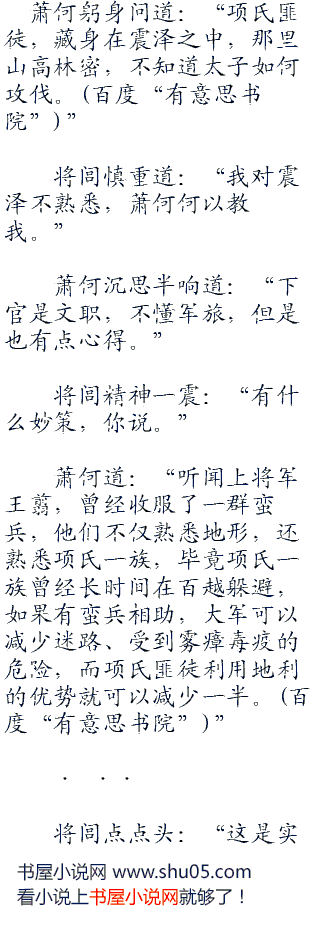 萧何躬身问道：“项氏匪
徒，藏身在震泽之中，那里
山高林密，不知道太子如何
攻伐。(百度“有意思书
院”)”
将闾慎重道：“我对震
泽不熟悉，萧何何以教
我。”
萧何沉思半响道：“下
官是文职，不懂军旅，但是
也有点心得。”
将闾精神一震：“有什
么妙策，你说。”
萧何道：“听闻上将军
王翦，曾经收服了一群蛮
兵，他们不仅熟悉地形，还
熟悉项氏一族，毕竟项氏一
族曾经长时间在百越躲避，
如果有蛮兵相助，大军可以
减少迷路、受到雾瘴毒疫的
危险，而项氏匪徒利用地利
的优势就可以减少一半。(百
度“有意思书院”)”
．．．
将闾点点头：“这是实
书屋小说网 www.shu05.com
看小说上书屋小说网就够了！